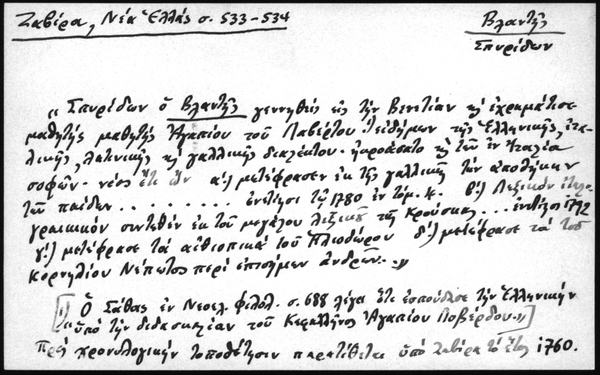 Ζαβίρα, Νέα Ἑλλάς σ. 533-534
Βλαντῆς
Σπυρίδων
„ Σπυρίδων ὁ Βλαντῆς γεννηθεὶς εἰς τὴν Βενετίαν κỳ ἐχρημάτισε
μαθητής μαθητὴς Ἀγαπίου τοῦ Λαβέρτου εἰδήμων τῆς Ἑλληνικῆς, ἰτα-
λικῆς, λατινικῆς κỳ γαλλικῆς διαλέκτου· ἠκροάσατο κỳ τῶν ἐν Ἰταλίᾳ
σοφῶν· νέος ἔτι ὢν α΄) μετέφρασεν ἐκ τῆς γαλλικῆς τὴν ἀποθήκην
τῶν παίδων ......... ἐνετίησι τῷ 1780 ἐν τόμ. 4. β΄) Λεξικὸν ἰταλο-
γραικικὸν συντεθὲν ἐκ τοῦ μεγάλου λεξικοῦ τῆς Κρούσκας... ἐνετίησι 1792
γ΄) μετέφρασε τὰ αἰθιοπικὰ τοῦ Ἡλιοδώρου δ΄) μετέφρασε τὰ τοῦ
Κορνηλίου Νέπωτος περὶ ἐπισήμων ἀνδρῶν..„
[1) Ὁ Σάθας ἐν Νεοελ. φιλολ. σ. 688 λέγει ὅτι ἐσπούδασε τὴν Ἑλληνικὴν
"ὑπὸ τὴν διδασκαλίαν τοῦ Κεφαλλῆνος Ἀγαπίου Λοβέρδου.„]
Πρὸς χρονολογικὴν τοποθέτησιν παρατίθεται ὑπὸ Ζαβίρα τὸ ἔτος 1760.